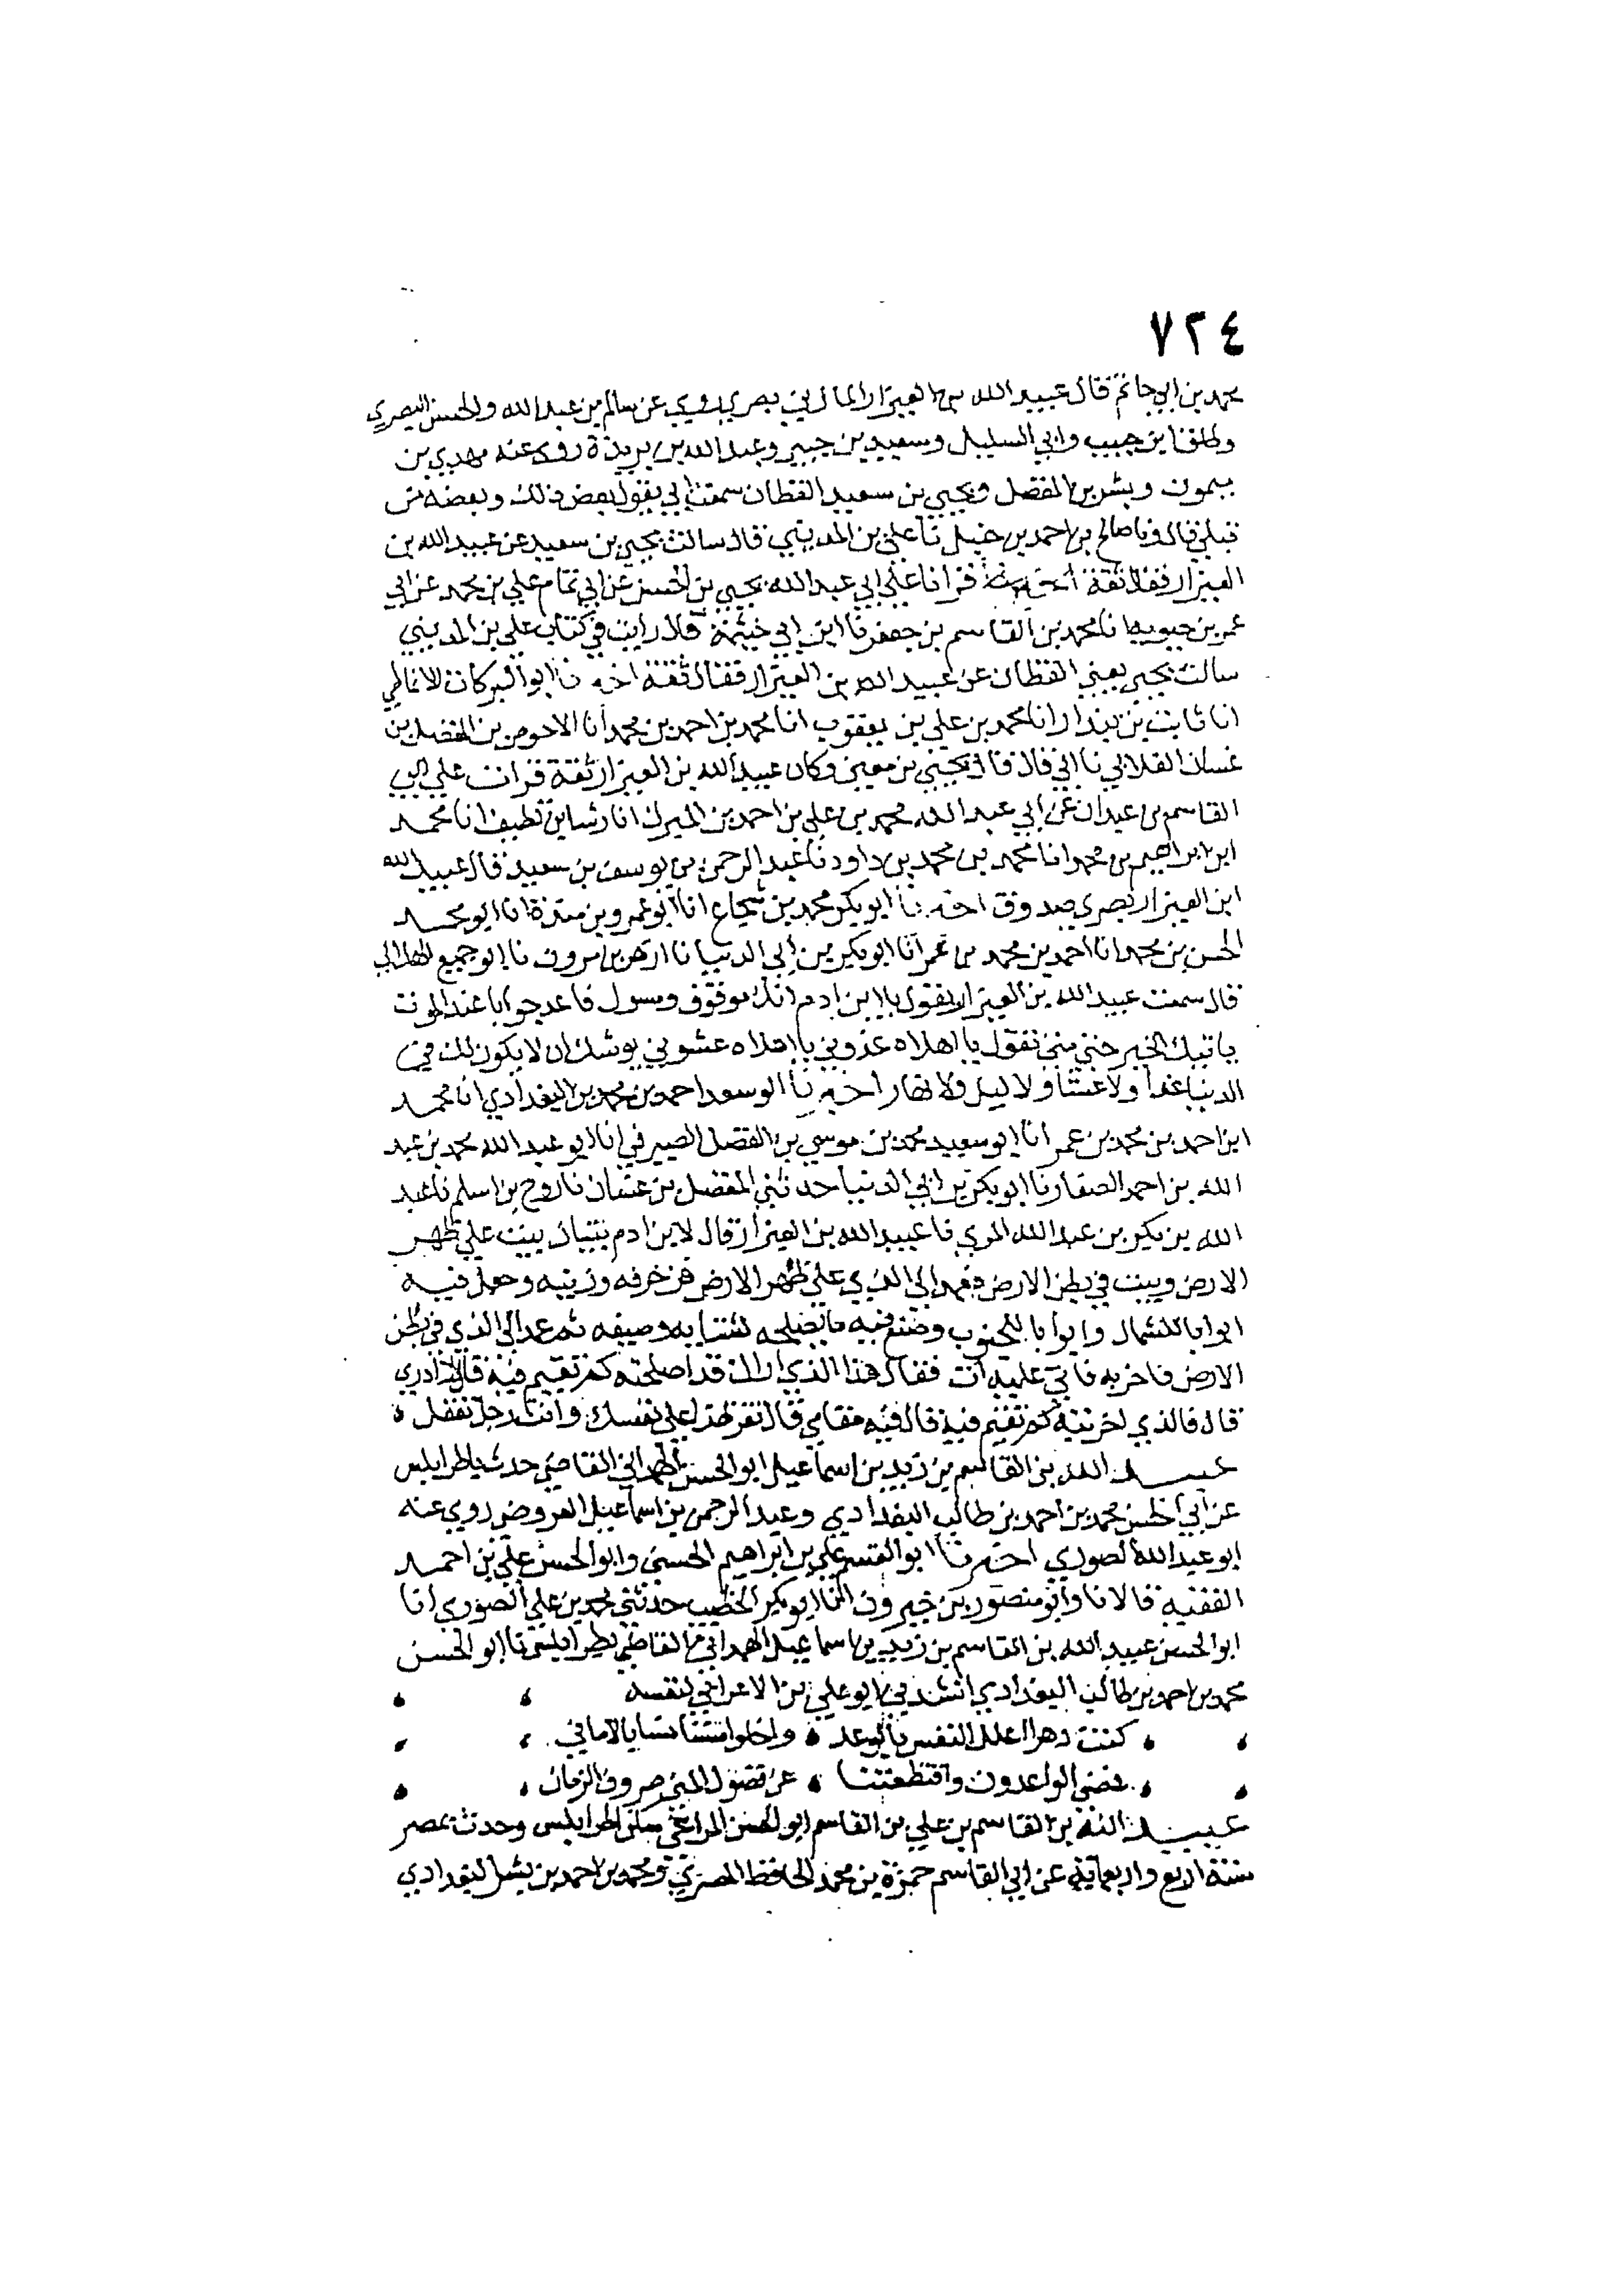 ٧٢٤
محمد بن ابي حاتم قال عبيد الله بن العيزار المازني بصري روي عن سالم بن عبد الله والحسن البصري
وطلق بن حبيب وابي السليل وسعيد بن جبير وعبد الله بن بريدة روى عنه مهدي بن
ميمون وبشر بن المفضل ويحيي بن سعيد القطان سمعت ابي يقول بعض ذلك وبعضه من
قبلي قال ونا صالح بن احمد بن حنبل نا علي بن المديني قال سالت يحيي بن سعيد عن عبيد الله بن
العيزار فقال ثقة قرانا علي ابي عبد الله يحيي بن الحسن عن ابي تمام علي بن محمد عن ابي
عمر بن حيويه انا محمد بن القاسم بن جعفر نا ابن ابي خيثمة قال رايت في كتاب علي بن المديني
سالت يحيي يعني القطان عن عبيد الله بن العيزار فقال ثقة اخبرنا ابو البركات الانماطي
انا ثابت بن بندار انا محمد بن علي بن يعقوب انا محمد بن احمد بن محمد انا الاحوص بن المفضل بن
غسان الغلابي نا ابي قال قال يحيي بن معين وكان عبيد الله بن العيزار ثقة قرات علي ابي
القاسم بن عبدان عن ابي عبد الله محمد بن علي بن احمد بن المبرك انا رشا بن نظيف انا محمد
ابن ابراهيم بن محمد انا محمد بن محمد بن داود نا عبد الرحمن بن يوسف بن سعيد قال عبيد الله
ابن العيزار بصري صدوق اخبرنا ابو بكر محمد بن شجاع انا ابو عمرو بن مندة انا ابو محمد
الحسن بن محمد انا احمد بن محمد بن عمر انا ابو بكر بن ابي الدنيا نا ازهر بن مروان نا ابو جميع الهلالي
قال سمعت عبيد الله بن العيزار يقول يا ابن ادم انك موقوف ومسول فاعد جوابا عند الموت
ياتيك الخبر حتي متي تقول يا اهلاه غدوني يا اهلاه عشوني يوشك ان لا يكون لك في
الدنيا غدا ولا عشا ولا ليل ولا نهار اخبرنا ابو سعد احمد بن محمد بن البغدادي انا محمد
ابن احمد بن محمد بن عمر انا ابو سعيد محمد بن موسي بن الفضل الصيرفي انا ابو عبد الله محمد بن عبد
الله بن احمد الصفار نا ابو بكر بن ابي الدنيا حدثني المفضل بن غسان نا روح بن اسلم نا عبد
الله بن بكر بن عبد الله المري نا عبيد الله بن العيزار قال لابن ادم بيتان بيت علي ظهر
الارض وبيت في بطن الارض فعمد الي الذي علي ظهر الارض فزخرفه وزينه وجعل فيه
ابوابا للشمال وابوابا للجنوب وصنع فيه ما يصلحه لشتايه وصيفه ثم عمد الي الذي في بطن
الارض فاخربه فاتي عليه ات فقال هذا الذي اراك قد اصلحته كم تقيم فيه قال لا ادري
قال فالذي اخربته كم تقيم فيه قال فيه مقامي قال تقر بهذا علي نفسك وانت رجل تعقل
عبيد الله بن القاسم بن زيد بن اسماعيل ابو الحسن الهمداني القاضي حدث باطرابلس
عن ابي الحسن محمد بن احمد بن طالب البغدادي وعبد الرحمن بن اسماعيل العروضي روي عنه
ابو عبد الله الصوري اخبرنا ابو القسم علي بن ابراهيم الحسني وابو الحسن علي بن احمد
الفقيه قالا نا وابو منصور بن خيرون انا ابو بكر الخطيب حدثني محمد بن علي الصوري انا
ابو الحسن عبيد الله بن القاسم بن زيد بن اسماعيل الهمداني القاضي بطرابلس نا ابو الحسن
محمد بن احمد بن طالب البغدادي انشدني ابو علي بن الاعرابي لنفسه
كنت دهرا اعلل النفس بالوعد واخلو مستانسا بالاماني
فمضي الواعدون واقتطعتنا عن فضول المني صروف الزمان
عبيد الله بن القاسم بن علي بن القاسم ابو الحسن المراغي سكن اطرابلس وحدث بمصر
سنة اربع واربعماية عن ابي القاسم حمزة بن محمد الحافظ المصري ومحمد بن احمد بن بشر البغدادي